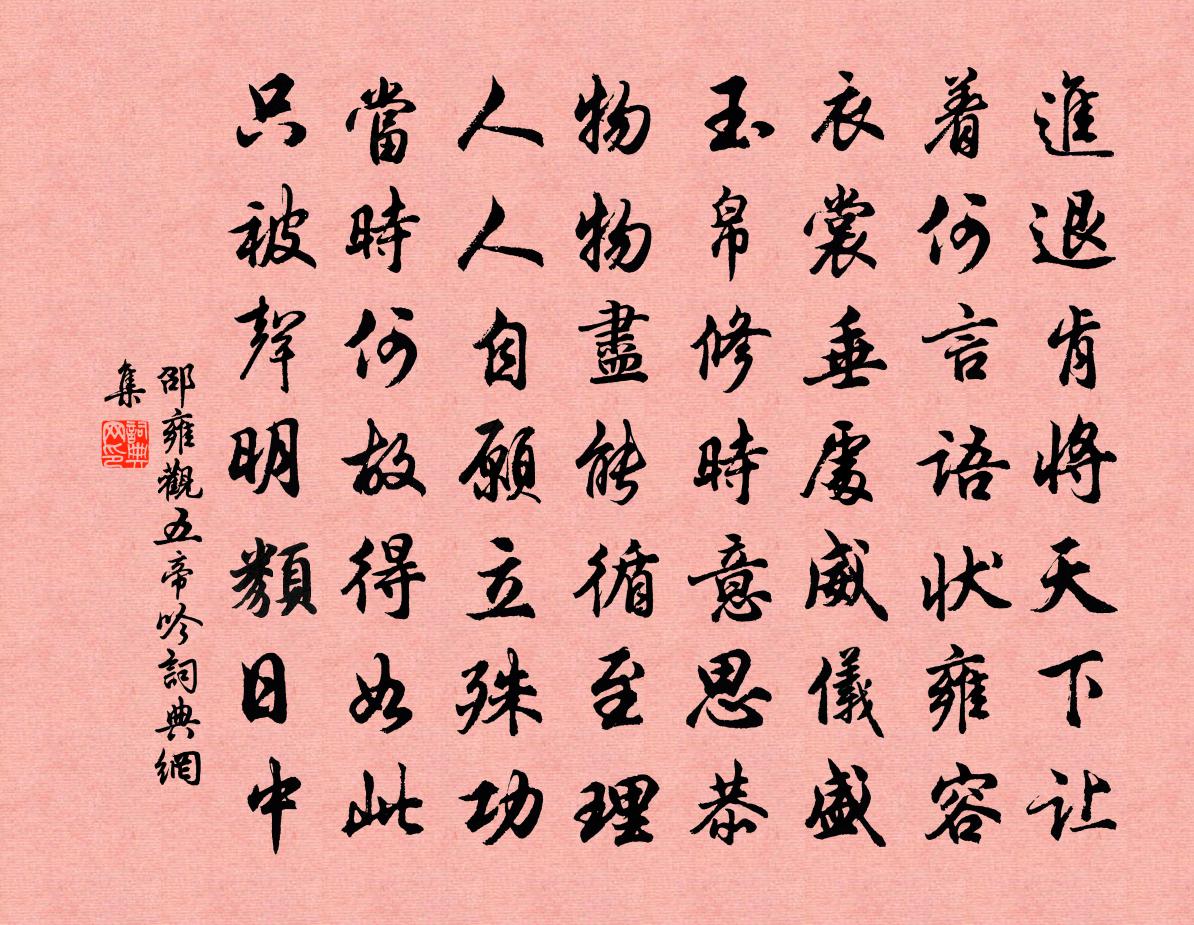 進退肯將天下让
着何言語状雍容
衣裳垂處威儀盛
玉帛修時意思恭
物物盡能循至理
人人自願立殊功
當時何故得如此
只被聲明類日中
邵雍觀五帝吟詞典網
集
詞典
网印